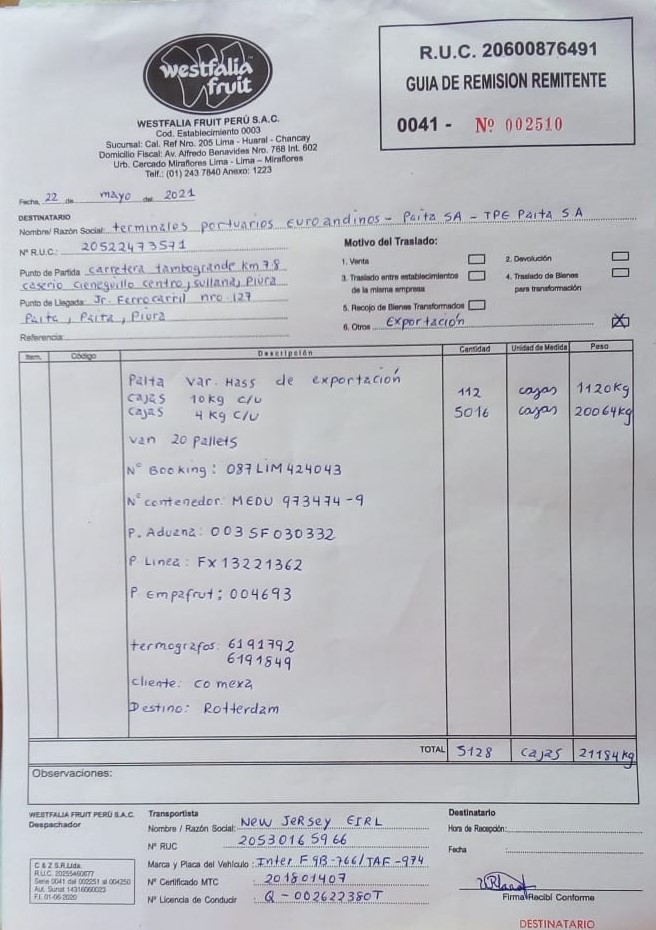 westfalia
fruit
WESTFALIA FRUIT PERÚ S.A.C.
Cod. Establecimiento 0003
Sucursal: Cal. Ref Nro. 205 Lima - Huaral - Chancay
Domicilio Fiscal: Av. Alfredo Benavides Nro. 768 Int. 602
Urb. Cercado Miraflores Lima - Lima – Miraflores
Telf.: (01) 243 7840 Anexo: 1223
R.U.C. 20600876491
GUIA DE REMISION REMITENTE
0041 - Nº 002510
Fecha, 22 de mayo del 2021
DESTINATARIO
Nombre/ Razón Social: terminales portuarios Euroandinos - Paita SA - TPE Paita SA
Nº R.U.C.: 20522473571
Punto de Partida carretera tambogrande km 7.8
caserio cieneguillo centro, sullana, Piura
Punto de Llegada: Jr. Ferrocarril nro 127
Paita, Paita, Piura
Referencia:
Motivo del Traslado:
1. Venta
2. Devolución
3. Traslado entre establecimientos
de la misma empresa
4. Traslado de Bienes
para transformación
5. Recojo de Bienes Transformados
6. Otros Exportación X
Item. Código Descripción Cantidad Unidad de Medida Peso
Palta var. Hass de exportación
cajas 10 kg c/u 112 cajas 1120kg
cajas 4 kg c/u 5016 cajas 20064kg
van 20 pallets
N° Booking: 087LIM424043
N° contenedor: MEDU 973474-9
P. Aduana: 003SF030332
P Linea: FX13221362
P Empafrut: 004693
termografos: 6191792
6191849
cliente: comexa
Destino: Rotterdam
TOTAL 5128 cajas 21184kg
Observaciones:
WESTFALIA FRUIT PERÚ S.A.C.
Despachador
C & Z S.R.Ltda.
R.U.C. 20255460677
Serie 0041 del 002251 al 004250
Aut. Sunat 14316060023
F.I. 01-06-2020
Transportista
Nombre / Razón Social: New Jersey EIRL
Nº RUC 20530165966
Marca y Placa del Vehículo: Inter F9B-766/TAF-974
Nº Certificado MTC 201801407
Nº Licencia de Conducir Q-002622380T
Destinatario
Hora de Recepción:
Fecha
Firma Recibí Conforme
DESTINATARIO